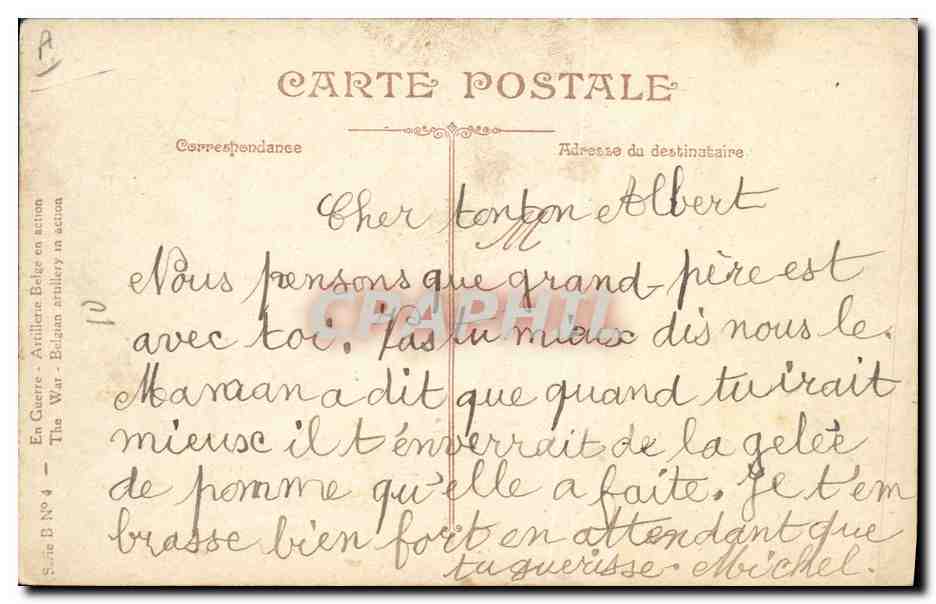 A
CARTE POSTALE
Correspondance
Adresse du destinataire
Cher tonton Albert
Nous pensons que grand-père est
avec toi. Vas tu mieux dis nous le.
Maman a dit que quand tu irait
mieux il t'énverrait de la gelée
de pomme qu'elle a faite. Je t'em
brasse bien fort en attendant que
tu guerisse. Michel.
10
CPAPHIL
Serie B N° 4 — En Guerre - Artillerie Belge en action
The War - Belgian artillery in action